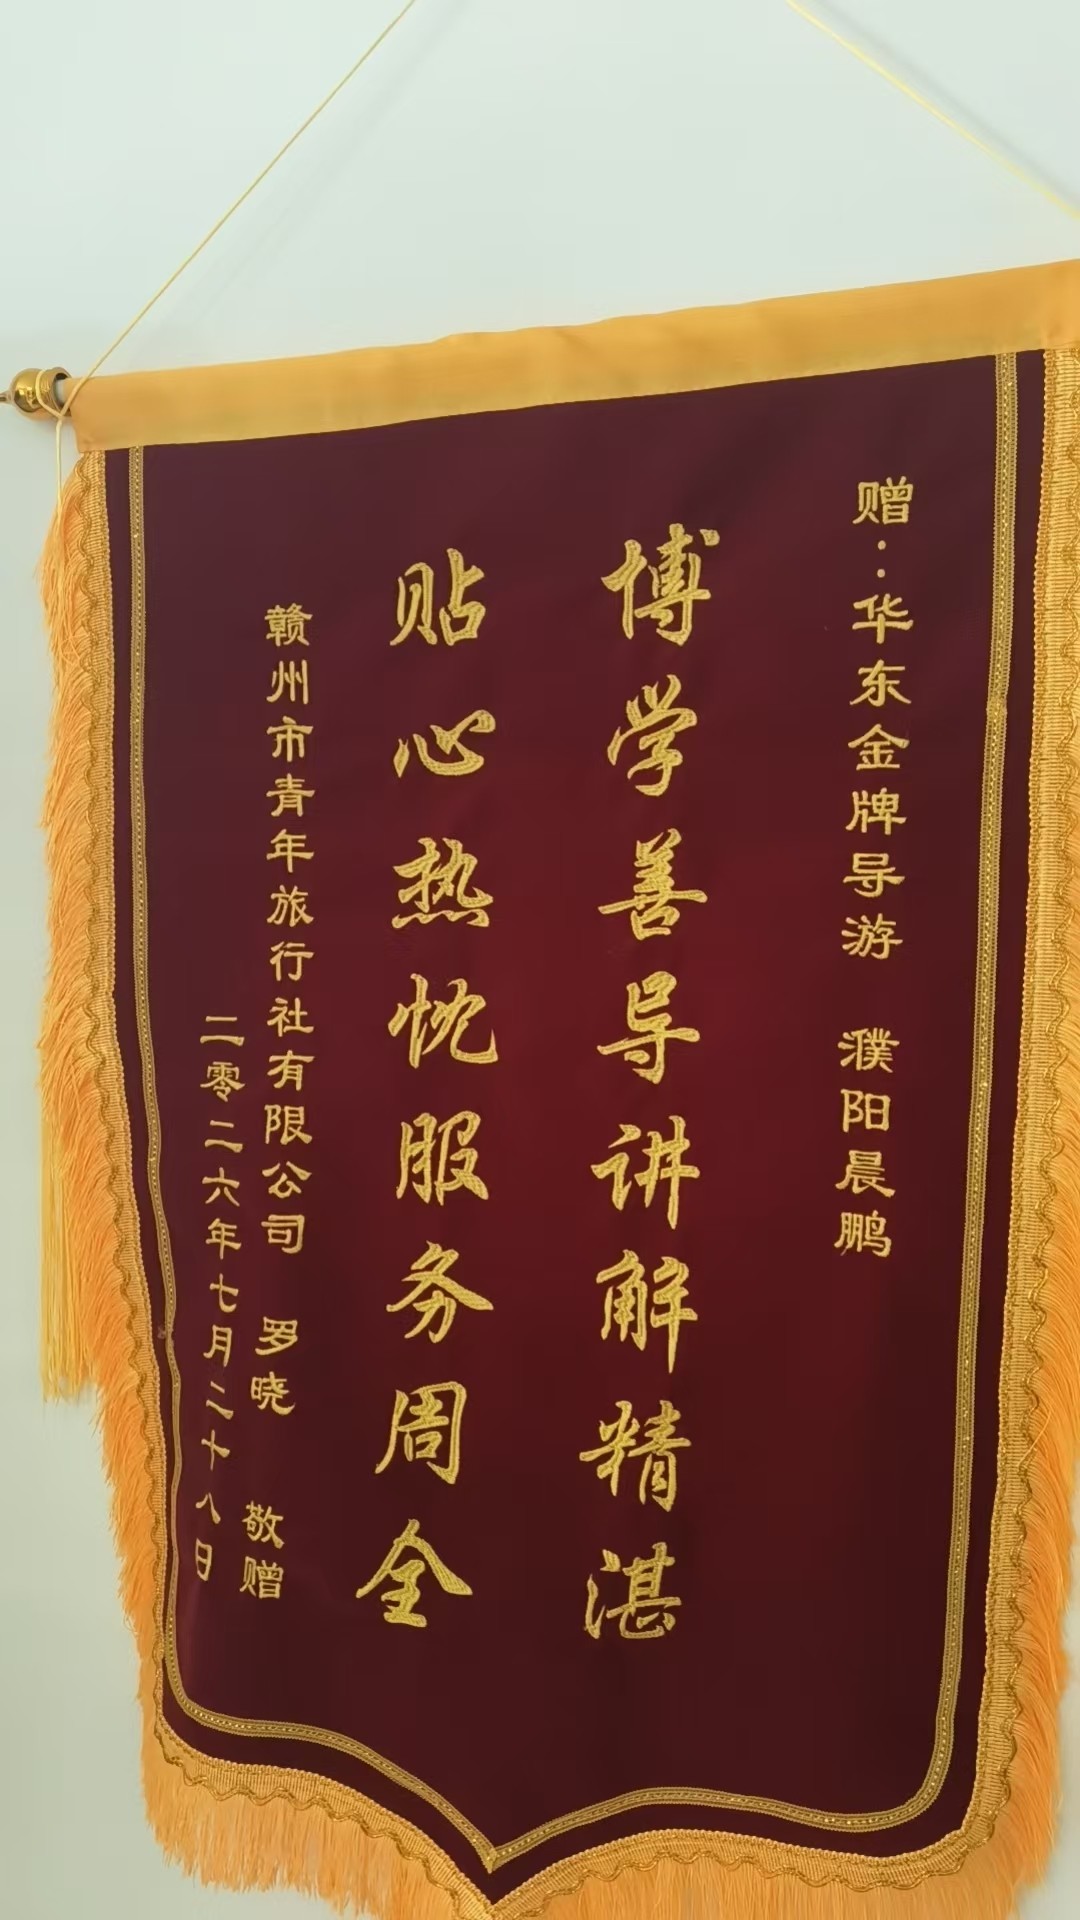 赠：华东金牌导游 濮阳晨鹏
博学善导讲解精湛
贴心热忱服务周全
赣州市青年旅行社有限公司 罗晓 敬赠
二零二六年七月二十八日